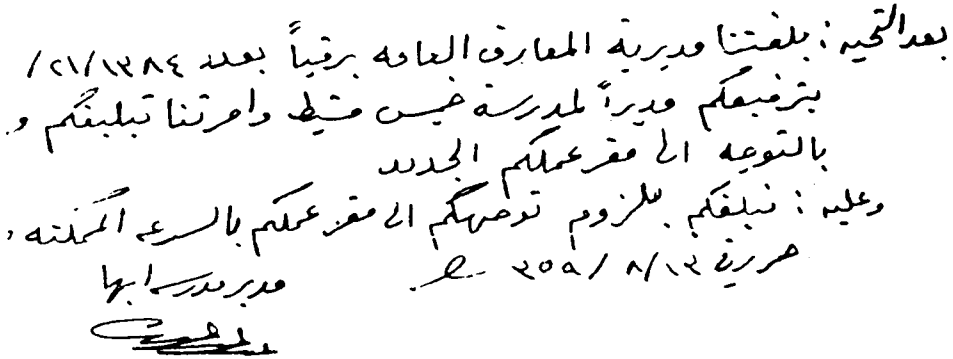 بعد التحيه : بلغتنا مديرية المعارف العامه برقياً بعدد ٢١/١٣٨٤/
بترفيعكم مديراً لمدرسة خميس مشيط وامرتنا تبليغكم و
بالتوجه الى مقر عملكم الجديد
وعليه : نبلغكم بلزوم توجهكم الى مقر عملكم بالسرعه الممكنه ،
حرر في ١٣/٨/٣٥٩
مدير مدرسة ابها